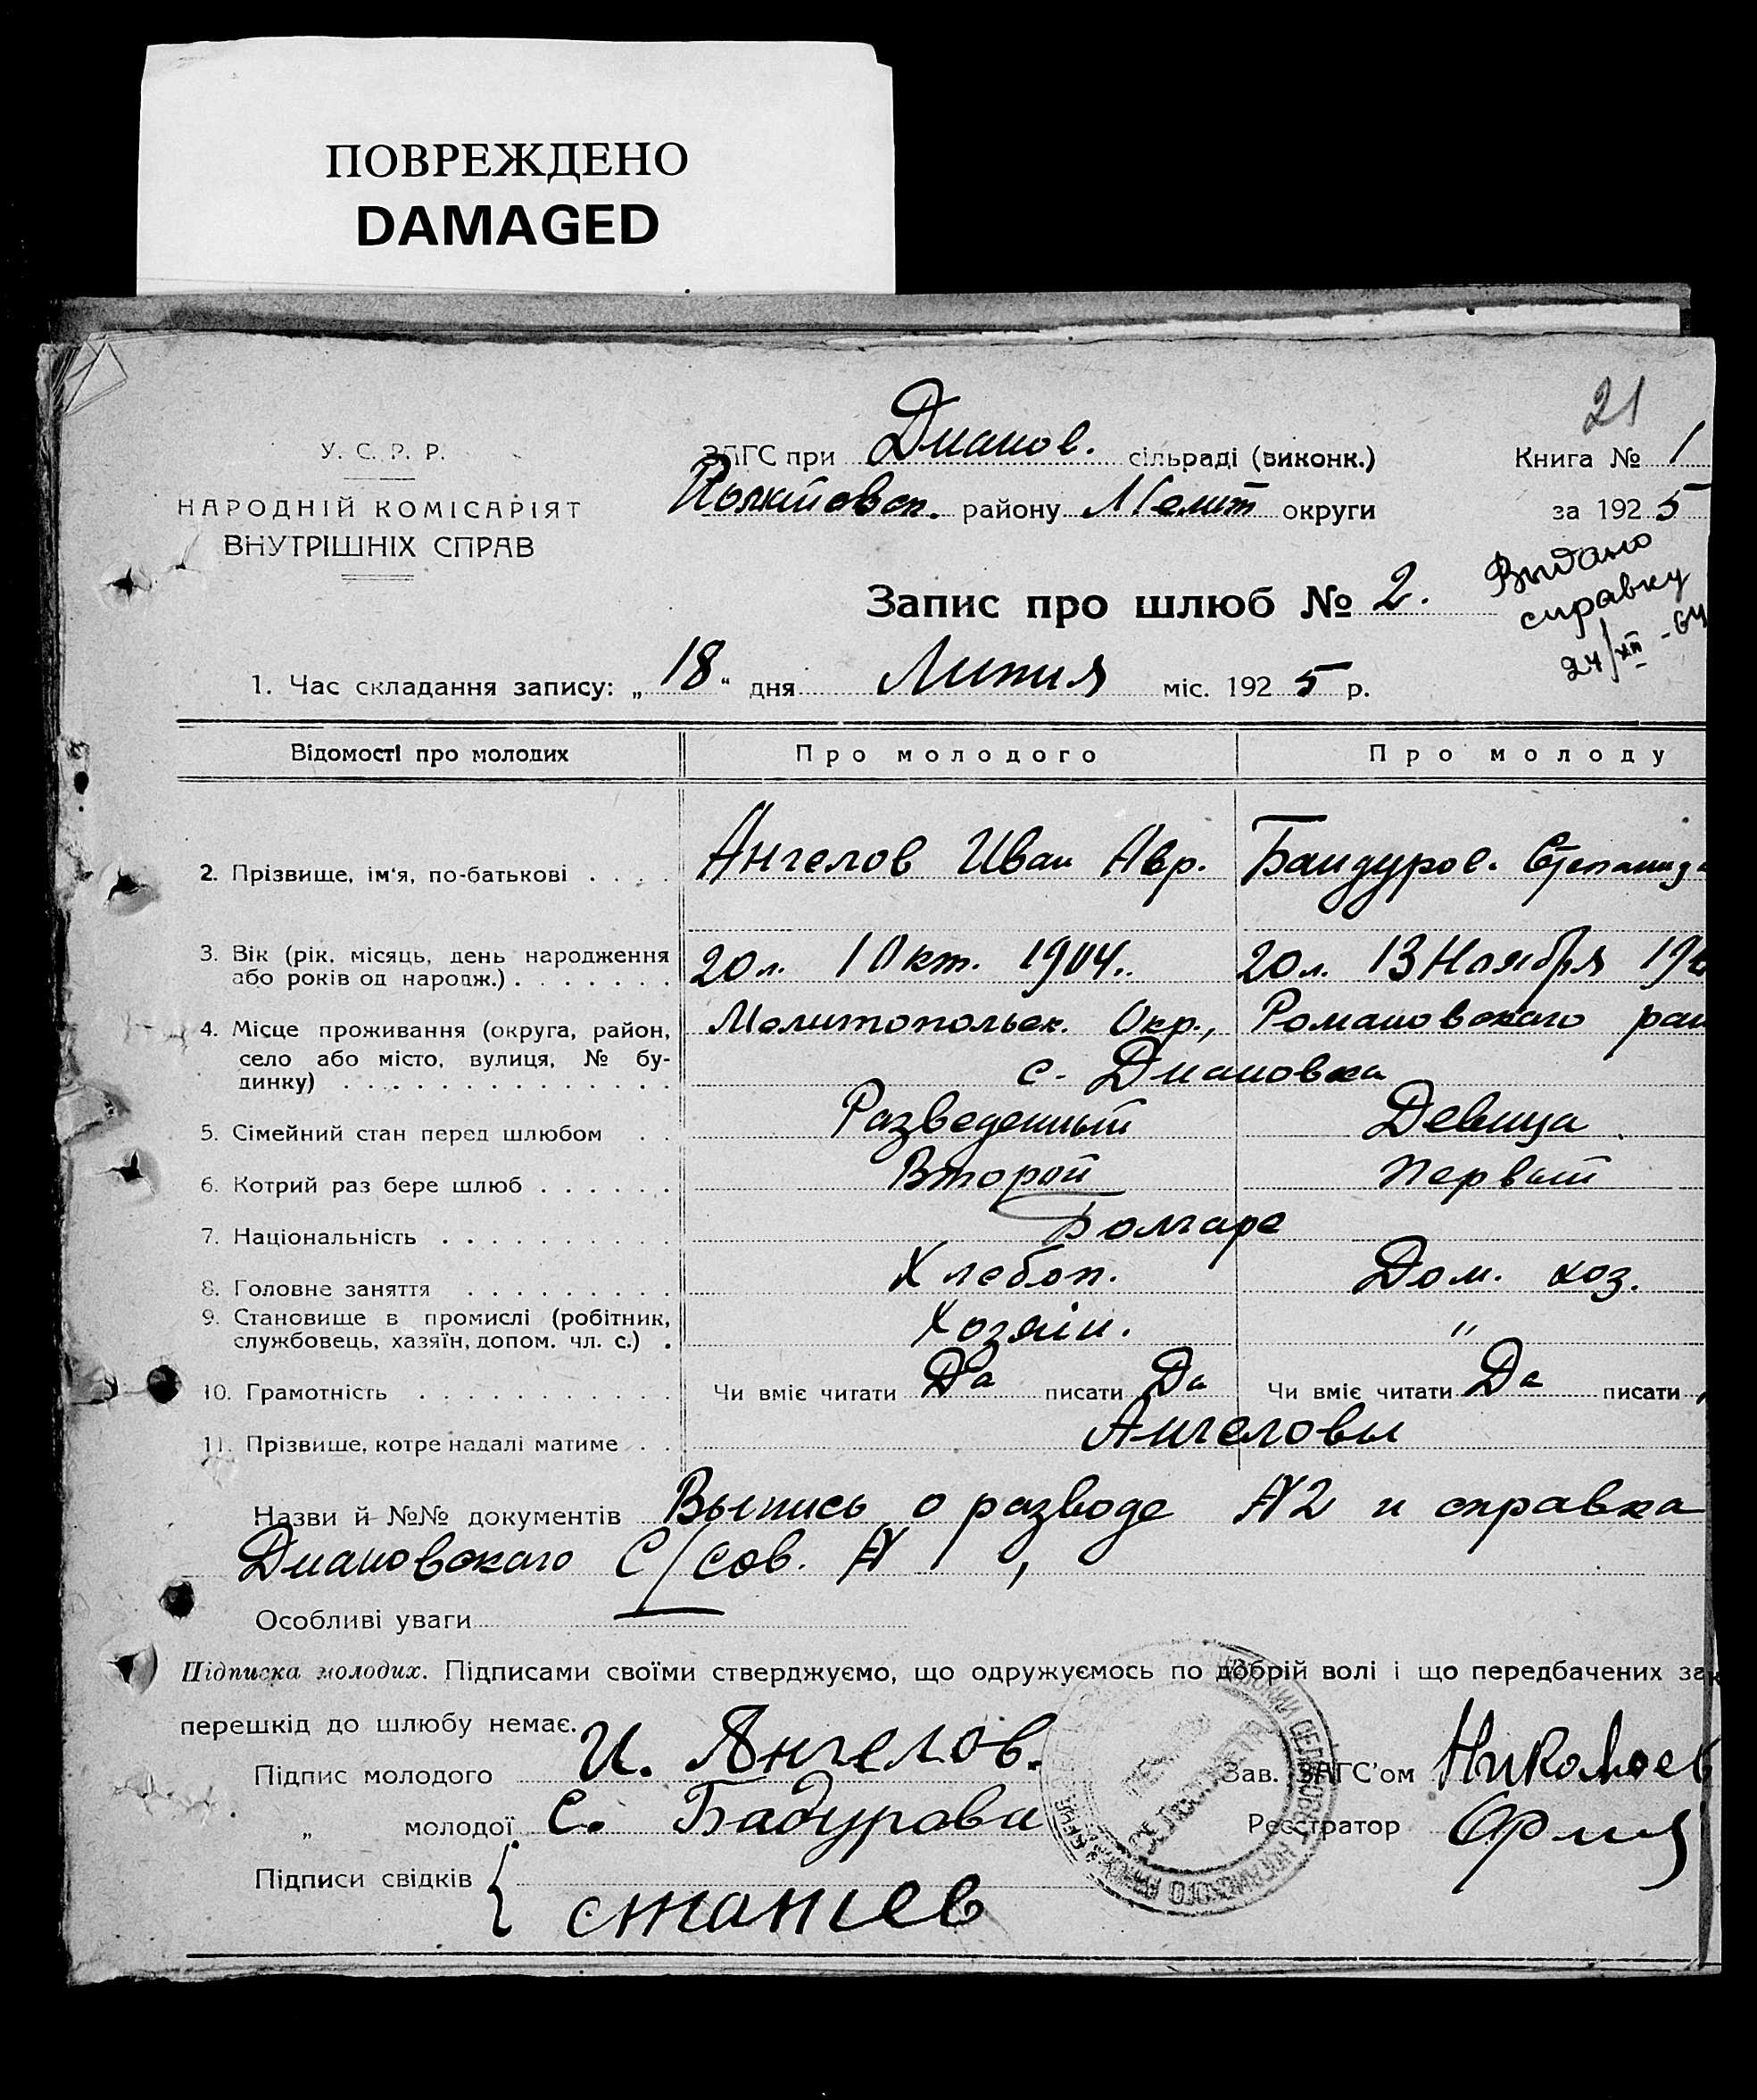 ПОВРЕЖДЕНО
DAMAGED
21
У. С. Р. Р.
НАРОДНІЙ КОМІСАРІЯТ
ВНУТРІШНІХ СПРАВ
ЗАГС при Дианов. сільраді (виконк.)
району Мелит округи
Книга № 1
за 1925
Запис про шлюб № 2.
Видано
справку
24/XII -64
1. Час складання запису: „18" дня Липня міс. 1925 р.
Відомості про молодих Про молодого Про молоду
2. Прізвище, ім'я, по-батькові . . . . Ангелов Иван Авр. Бандуров. Степанида
3. Вік (рік, місяць, день народження
або років од народж.) . . . . . . . 20 л. 1 Окт. 1904. 20 л. 13 Ноября 190
4. Місце проживання (округа, район, Мелитопольск. Окр., Романовскаго рай
село або місто, вулиця, № бу-
динку) . . . . . . . . . . . . . . с. Диановка
5. Сімейний стан перед шлюбом . . Разведенный Девица
6. Котрий раз бере шлюб . . . . . . Второй Первый
7. Національність . . . . . . . . . . Болгаре
8. Головне заняття . . . . . . . . . Хлебоп. Дом. хоз.
9. Становище в промислі (робітник,
службовець, хазяїн, допом. чл. с.) . Хозяін. "
10. Грамотність . . . . . . . . . . . Чи вміє читати Да писати Да Чи вміє читати Да писати
11. Прізвище, котре надалі матиме . . Ангеловы
Назви й №№ документів Выпись о разводе №2 и справка
Диановскаго С/сов. №
Особливі уваги
Підписка молодих. Підписами своїми стверджуємо, що одружуємось по добрій волі і що передбачених зак
перешкід до шлюбу немає.
Підпис молодого И. Ангелов. Зав. ЗАГС'ом Николаев
„ молодої С. Бадурова Реєстратор
Підписи свідків { статев